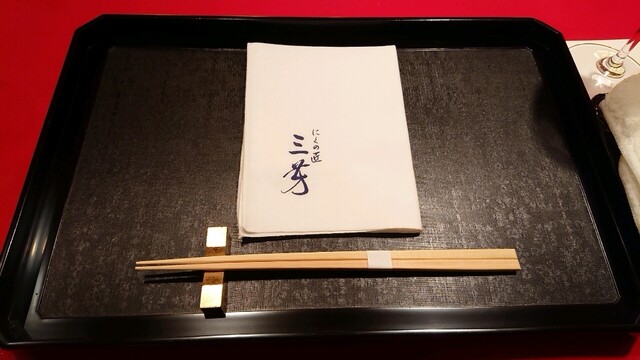 にくの匠
三芳